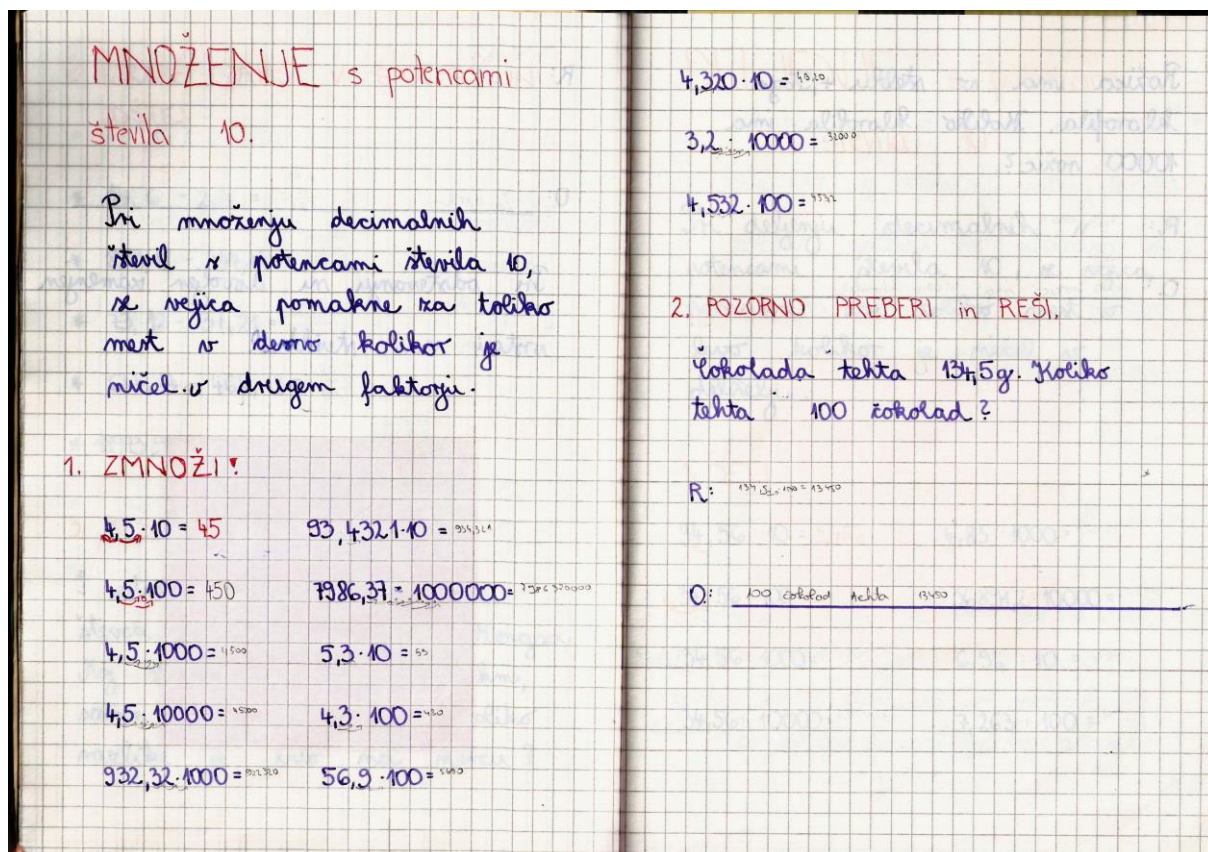 MNOŽENJE s potencami
števila 10.
Pri množenju decimalnih
števil s potencami števila 10,
se vejica pomakne za toliko
mest v desno kolikor je
ničel v drugem faktorju.
1. ZMNOŽI!
4,5·10 = 45
4,5·100 = 450
4,5·1000 = 4500
4,5·10000 =
932,32·1000 =
93,4321·10 =
7986,37·1000000=
5,3·10 = 53
4,3·100 = 430
56,9·100 = 5690
4,320·10 =
3,2·10000 = 32000
4,532·100 =
2. POZORNO PREBERI in REŠI.
Čokolada tehta 134,5g. Koliko
tehta 100 čokolad?
R: 134,5·100 = 13450
O: 100 čokolad tehta 13450